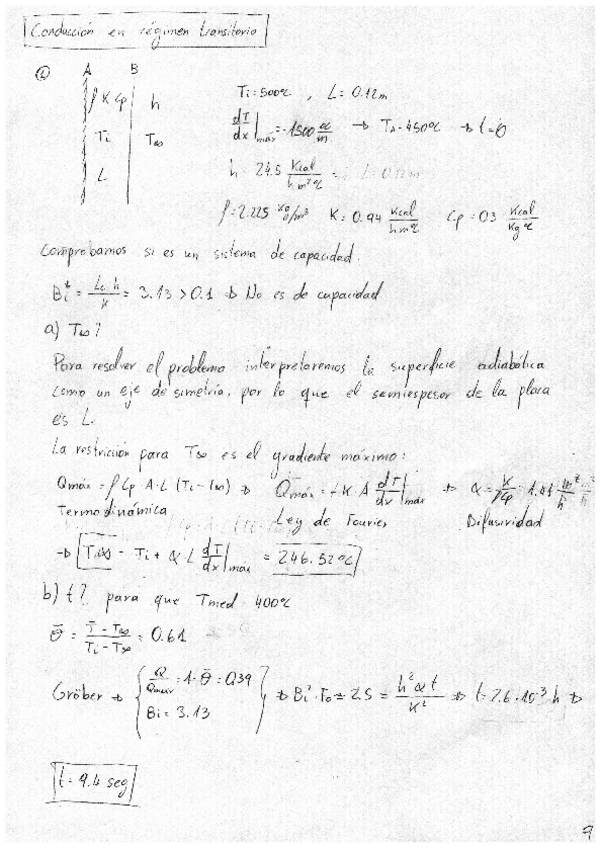 Conducción en régimen transitorio
A B
ρ K Cp h
Ti T∞
L
Ti=500ºC , L=0.12m
dT/dx|máx = -1500 ºC/m → TA=450ºC → t=
h=245 Kcal/h m²ºC
ρ=2.225 Kg/m³ K=0.94 Kcal/h m ºC Cp=0.3 Kcal/Kg ºC
Comprobamos si es un sistema de capacidad.
Bi* = Lc·h/K = 3.13 > 0.1 → No es de capacidad
a) T∞?
Para resolver el problema interpretaremos la superficie adiabática
como un eje de simetría, por lo que el semiespesor de la placa
es L.
La restricción para T∞ es el gradiente máximo:
Qmáx = ρ Cp A·L (Ti-T∞) → Qmáx = + K·A dT/dx|máx → α = K/ρCp =
Termodinámica Ley de Fourier Difusividad
→ T∞ = Ti + α L dT/dx|máx = 246.52ºC
b) t? para que Tmed=400ºC
θ̄ = T̄-T∞/Ti-T∞ = 0.61
Gröber → { Q/Qmáx = 1-θ̄ = 0.39
Bi = 3.13 } → Bi²·Fo = 2.5 = h²αt/K² → t=2.6·10⁻³ h →
t= 9.4 seg
9